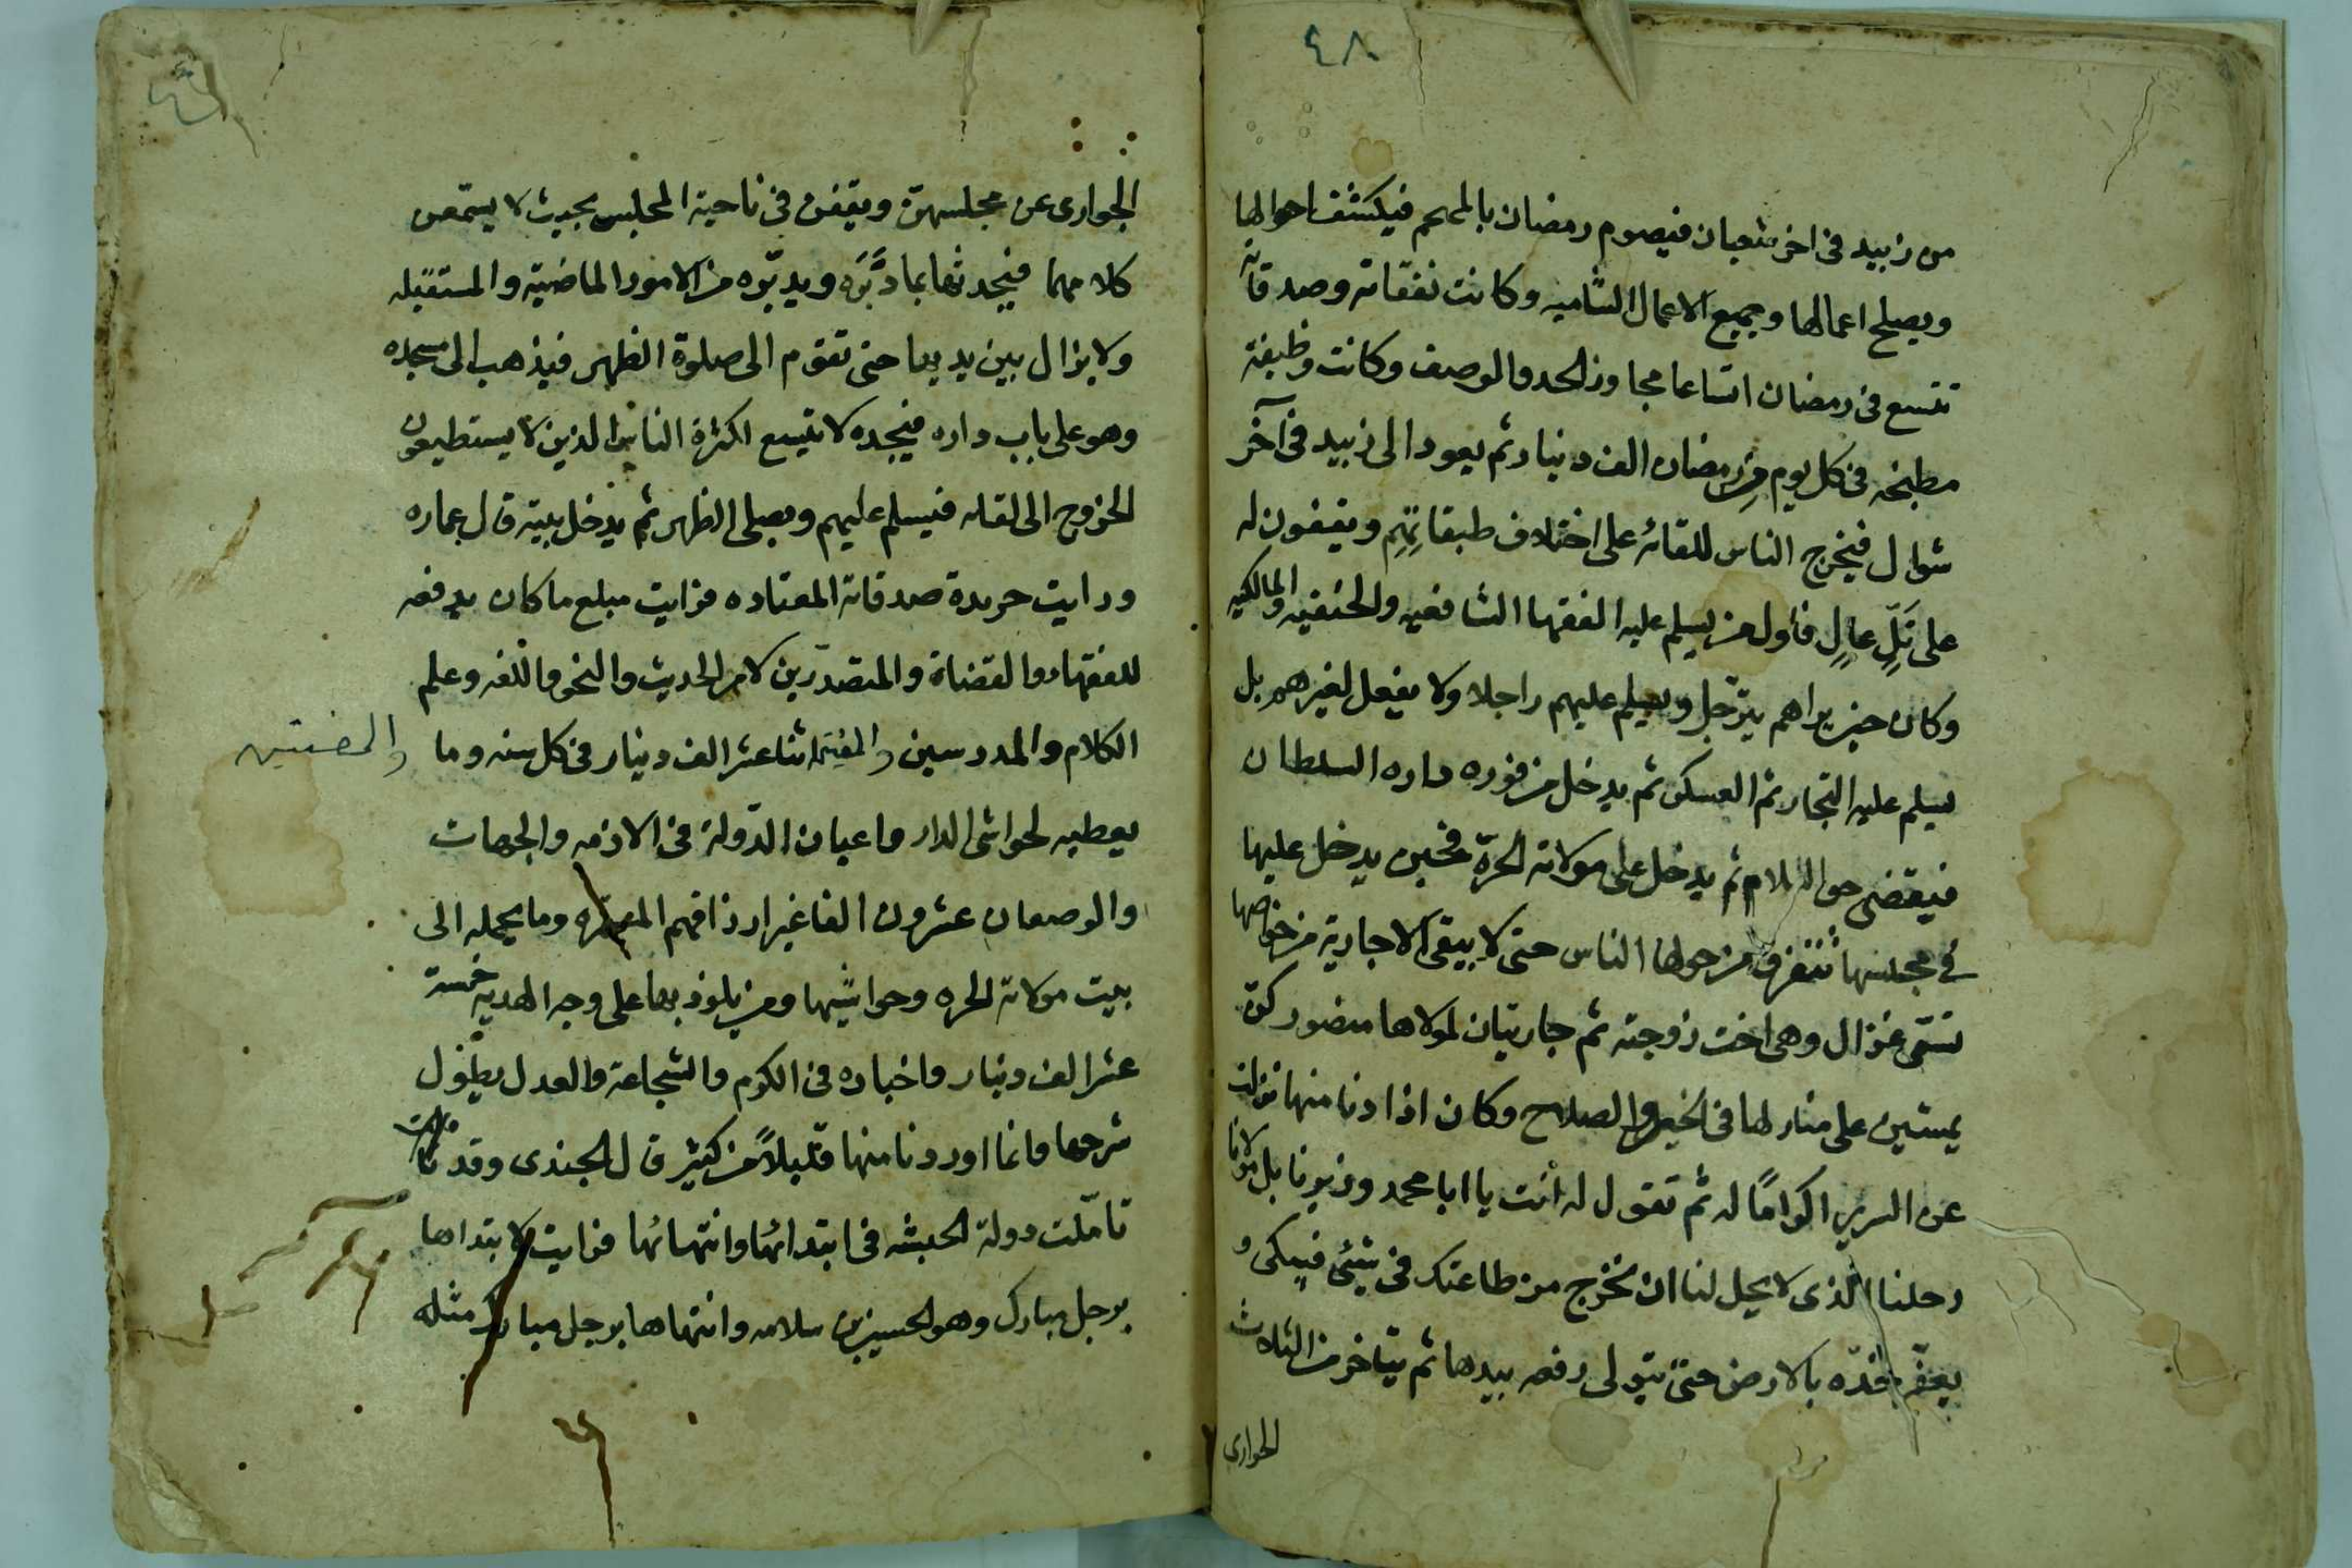 ٤٨
من زبيد فى اخر شعبان فيصوم رمضان بالمهجم فيكشف احوالها
ويصلح اعمالها وجميع الاعمال الشاميه وكانت نفقاته وصدقاته
تتسع فى رمضان اتساعا مجاوز الحد والوصف وكانت وظيفة
مطبخه فى كل يوم من رمضان الف دينار ثم يعود الى زبيد فى آخر
شوال فيخرج الناس للقائه على اختلاف طبقاتهم ويقفون له
على تلٍّ عالٍ فأول من يسلم عليه الفقها الشافعيه والحنفيه والمالكيه
وكان حين يراهم يترجل ويسلم عليهم راجلا ولا يفعل لغيرهم بل
يسلم عليه التجار ثم العسكر ثم يدخل من فوره داره السلطان
فيقضى حق السلام ثم يدخل على مولاته الحرّة فحين يدخل عليها
فى مجلسها تتفرق من حولها الناس حتى لا يبقى الا جارية من خواصها
تسمّى غزال وهى اخت زوجته ثم جاريتان لمولاها منصور كنّ
يمشين على منارلها فى الخير والصلاح وكان اذا دنا منها نزلت
عن السرير اكرامًا له ثم تقول له أنت يا ابا محمد وزيرنا بل مولانا
رجلنا الذى لا يحل لنا ان نخرج من طاعتك فى شئ فيبكى و
يعفّر خدّه بالارض حتى تتولى رفعه بيدها ثم يتاخر من الثلاث
الجوارى
الجوارى عن مجلسهنّ ويقفن فى ناحية المجلس بحيث لا يستمعن
كلامهما فيحدثها بما دبَّرَه ويدبّره من الامور الماضية والمستقبله
ولا يزال بين يديها حتى تقوم الى صلوة الظهر فيذهب الى مسجده
وهو على باب داره فيجده لا يتسع لكثرة الناس الذين لا يستطيعون
الخروج الى لقائه فيسلم عليهم ويصلى الظهر ثم يدخل بيته قال عماره
ورايت جريدة صدقاته المعتاده فرايت مبلغ ما كان يدفعه
للفقهاء والقضاة والمتصدّرين لامر الحديث والنحو واللغه وعلم
الكلام والمدرسين اثنا عشر الف دينار فى كل سنه وما
والمفتين
يعطيه لحواشى الدار واعيان الدّولة فى الازمه والجهات
والوصفان عشرون الفا غير ارزاقهم المقرره وما يحمله الى
بيت مولاته الحره وحواشيها ومن يلوذ بها على وجه الهدية خمسة
عشر الف دينار واخباره فى الكرم والشجاعة والعدل يطول
شرحها وانما اوردنا منها قليلاً من كثير قال الجندى وقد
تامّلت دولة الحبشه فى ابتدائها وانتهائها فرايت لابتداها
برجل مبارك وهو الحسين بن سلامه وانتهاها برجل مبارك مثله